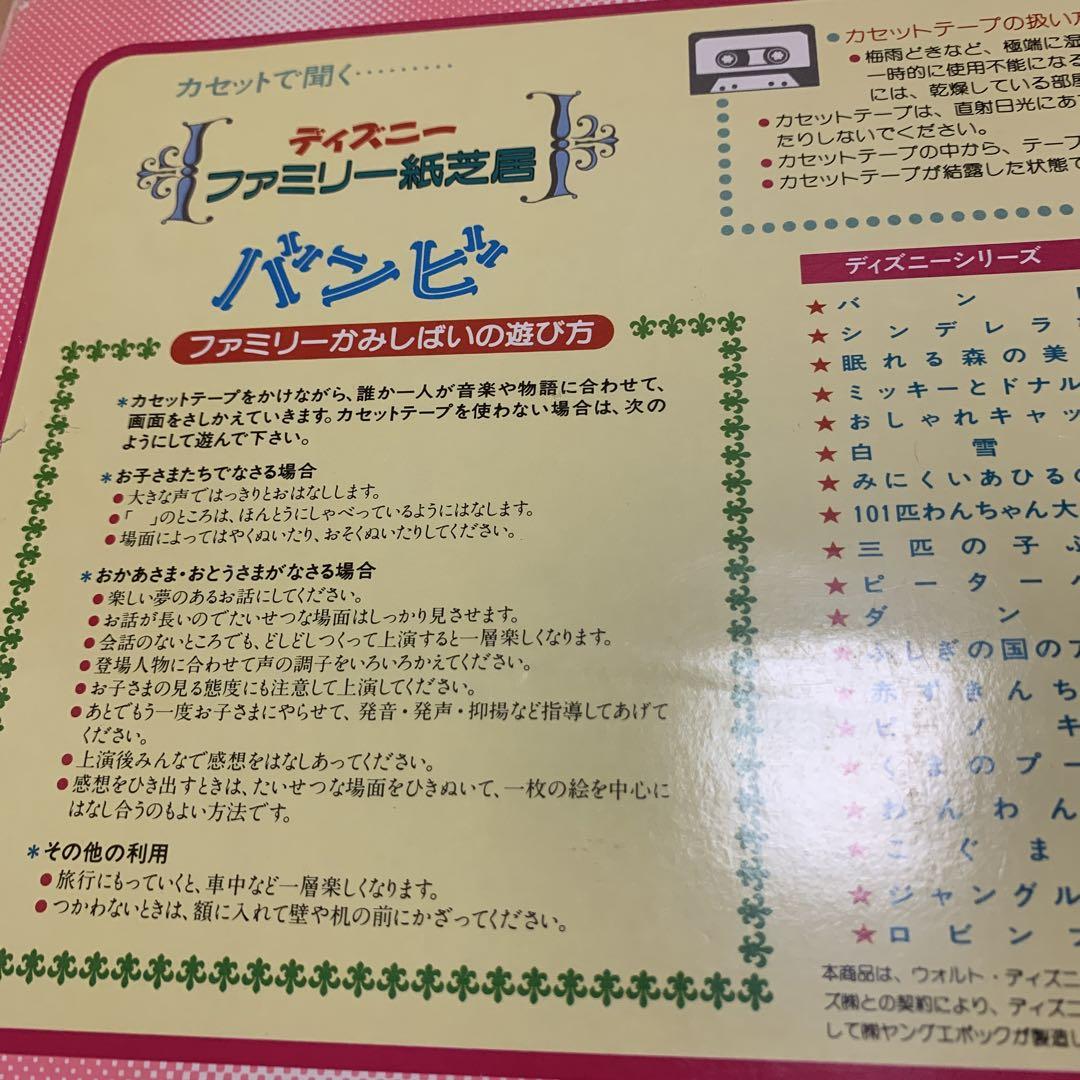 カセットで聞く………
ディズニー
ファミリー紙芝居
バンビ
ファミリーかみしばいの遊び方
*カセットテープをかけながら、誰か一人が音楽や物語に合わせて、
画面をさしかえていきます。カセットテープを使わない場合は、次の
ようにして遊んで下さい。
*お子さまたちでなさる場合
●大きな声ではっきりとおはなしします。
●「　」のところは、ほんとうにしゃべっているようにはなします。
●場面によってはやくぬいたり、おそくぬいたりしてください。
*おかあさま・おとうさまがなさる場合
●楽しい夢のあるお話にしてください。
●お話が長いのでたいせつな場面はしっかり見させます。
●会話のないところでも、どしどしつくって上演すると一層楽しくなります。
●登場人物に合わせて声の調子をいろいろかえてください。
●お子さまの見る態度にも注意して上演してください。
●あとでもう一度お子さまにやらせて、発音・発声・抑揚など指導してあげて
ください。
●上演後みんなで感想をはなしあってください。
●感想をひき出すときは、たいせつな場面をひきぬいて、一枚の絵を中心に
はなし合うのもよい方法です。
*その他の利用
●旅行にもっていくと、車中など一層楽しくなります。
●つかわないときは、額に入れて壁や机の前にかざってください。
●カセットテープの扱い方
●梅雨どきなど、極端に湿
一時的に使用不能になる
には、乾燥している部屋
●カセットテープは、直射日光にあ
たりしないでください。
●カセットテープの中から、テープ
●カセットテープが結露した状態で
ディズニーシリーズ
★バン
★シンデレラ
★眠れる森の美
★ミッキーとドナル
★おしゃれキャッ
★白雪
★みにくいあひるの
★101匹わんちゃん大
★三匹の子ぶ
★ピーターパ
★ダン
★ふしぎの国のア
★赤ずきんち
★ピノキ
★くまのプー
★わんわん
★こぐま
★ジャングル
★ロビンフ
本商品は、ウォルト・ディズニ
ズ㈱との契約により、ディズニ
して㈱ヤングエポックが製造し